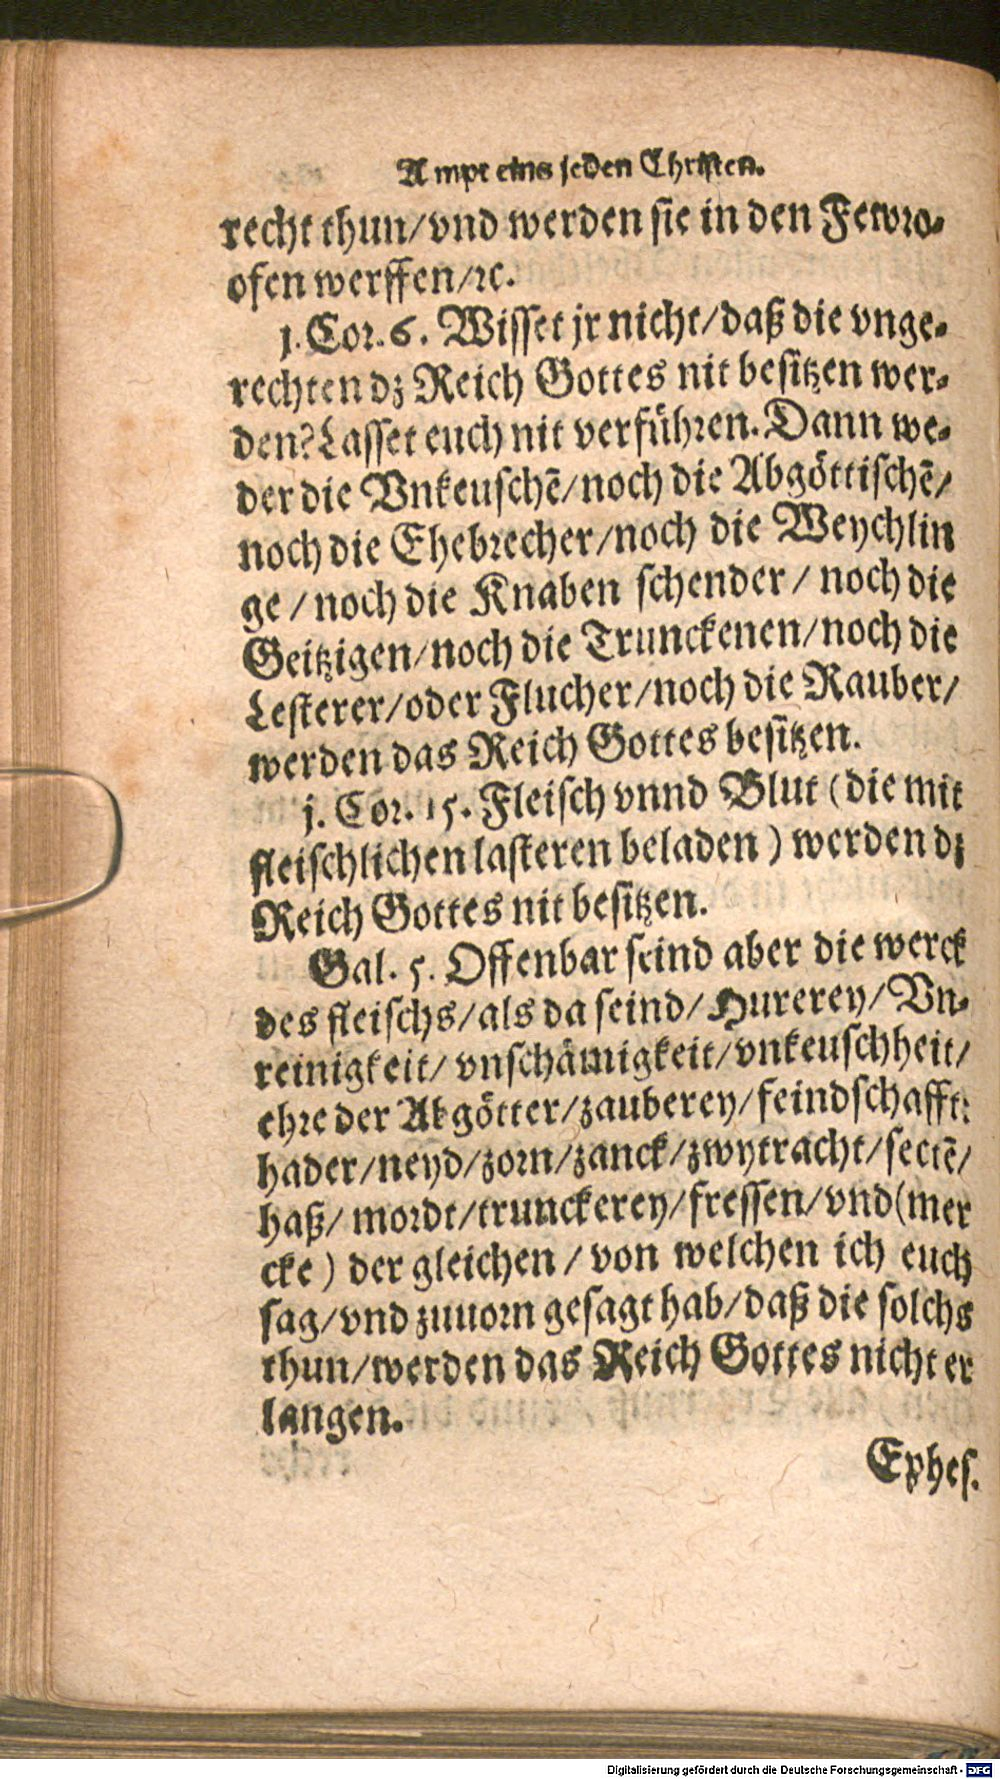 Ampt eins jeden Christen.
recht thun/vnd werden sie in den Fewro-
ofen werffen/ꝛc.
j. Cor. 6. Wisset jr nicht/daß die vnge-
rechten dz Reich Gottes nit besitzen wer-
den? Lasset euch nit verführen. Dann we-
der die Vnkeuschē/noch die Abgöttischē/
noch die Ehebrecher/noch die Weychlin
ge/noch die Knaben schender/noch die
Geitzigen/noch die Trunckenen/noch die
Lesterer/oder Flucher/noch die Rauber/
werden das Reich Gottes besitzen.
j. Cor. 15. Fleisch vnnd Blut (die mit
fleischlichen lasteren beladen) werden dz
Reich Gottes nit besitzen.
Gal. 5. Offenbar seind aber die werck
des fleischs/als da seind/Hurerey/Vn-
reinigkeit/vnschämigkeit/vnkeuschheit/
ehre der Abgötter/zauberey/feindschafft:
hader/neyd/zorn/zanck/zwytracht/sectē/
haß/mordt/trunckerey/fressen/vnd (mer
cke) der gleichen/von welchen ich euch
sag/vnd zuuorn gesagt hab/daß die solchs
thun/werden das Reich Gottes nicht er
langen.
Ephes.
Digitalisierung gefördert durch die Deutsche Forschungsgemeinschaft - DFG